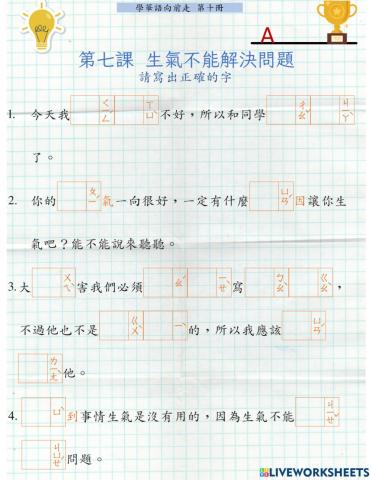 學華語向前走 第十冊
A
第七課 生氣不能解決問題
請寫出正確的字
1. 今天我 ㄑㄧㄥˊ ㄒㄩˋ 不好，所以和同學 ㄔㄠˇ ㄐㄧㄚˋ
了。
2. 你的 ㄆㄧˊ 氣一向很好，一定有什麼 ㄩㄢˊ 因讓你生
氣吧？能不能說來聽聽。
3. 大 害我們必須 寫 ㄅㄠˋ ㄍㄠˋ ，
不過他也不是 ㄍㄨˋ ㄧˋ 的，所以我應該 ㄩㄢˊ
ㄌㄧㄤˋ 他。
4. ㄩˋ 到事情生氣是沒有用的，因為生氣不能 ㄐㄧㄝˇ
ㄐㄩㄝˊ 問題。
LIVEWORKSHEETS